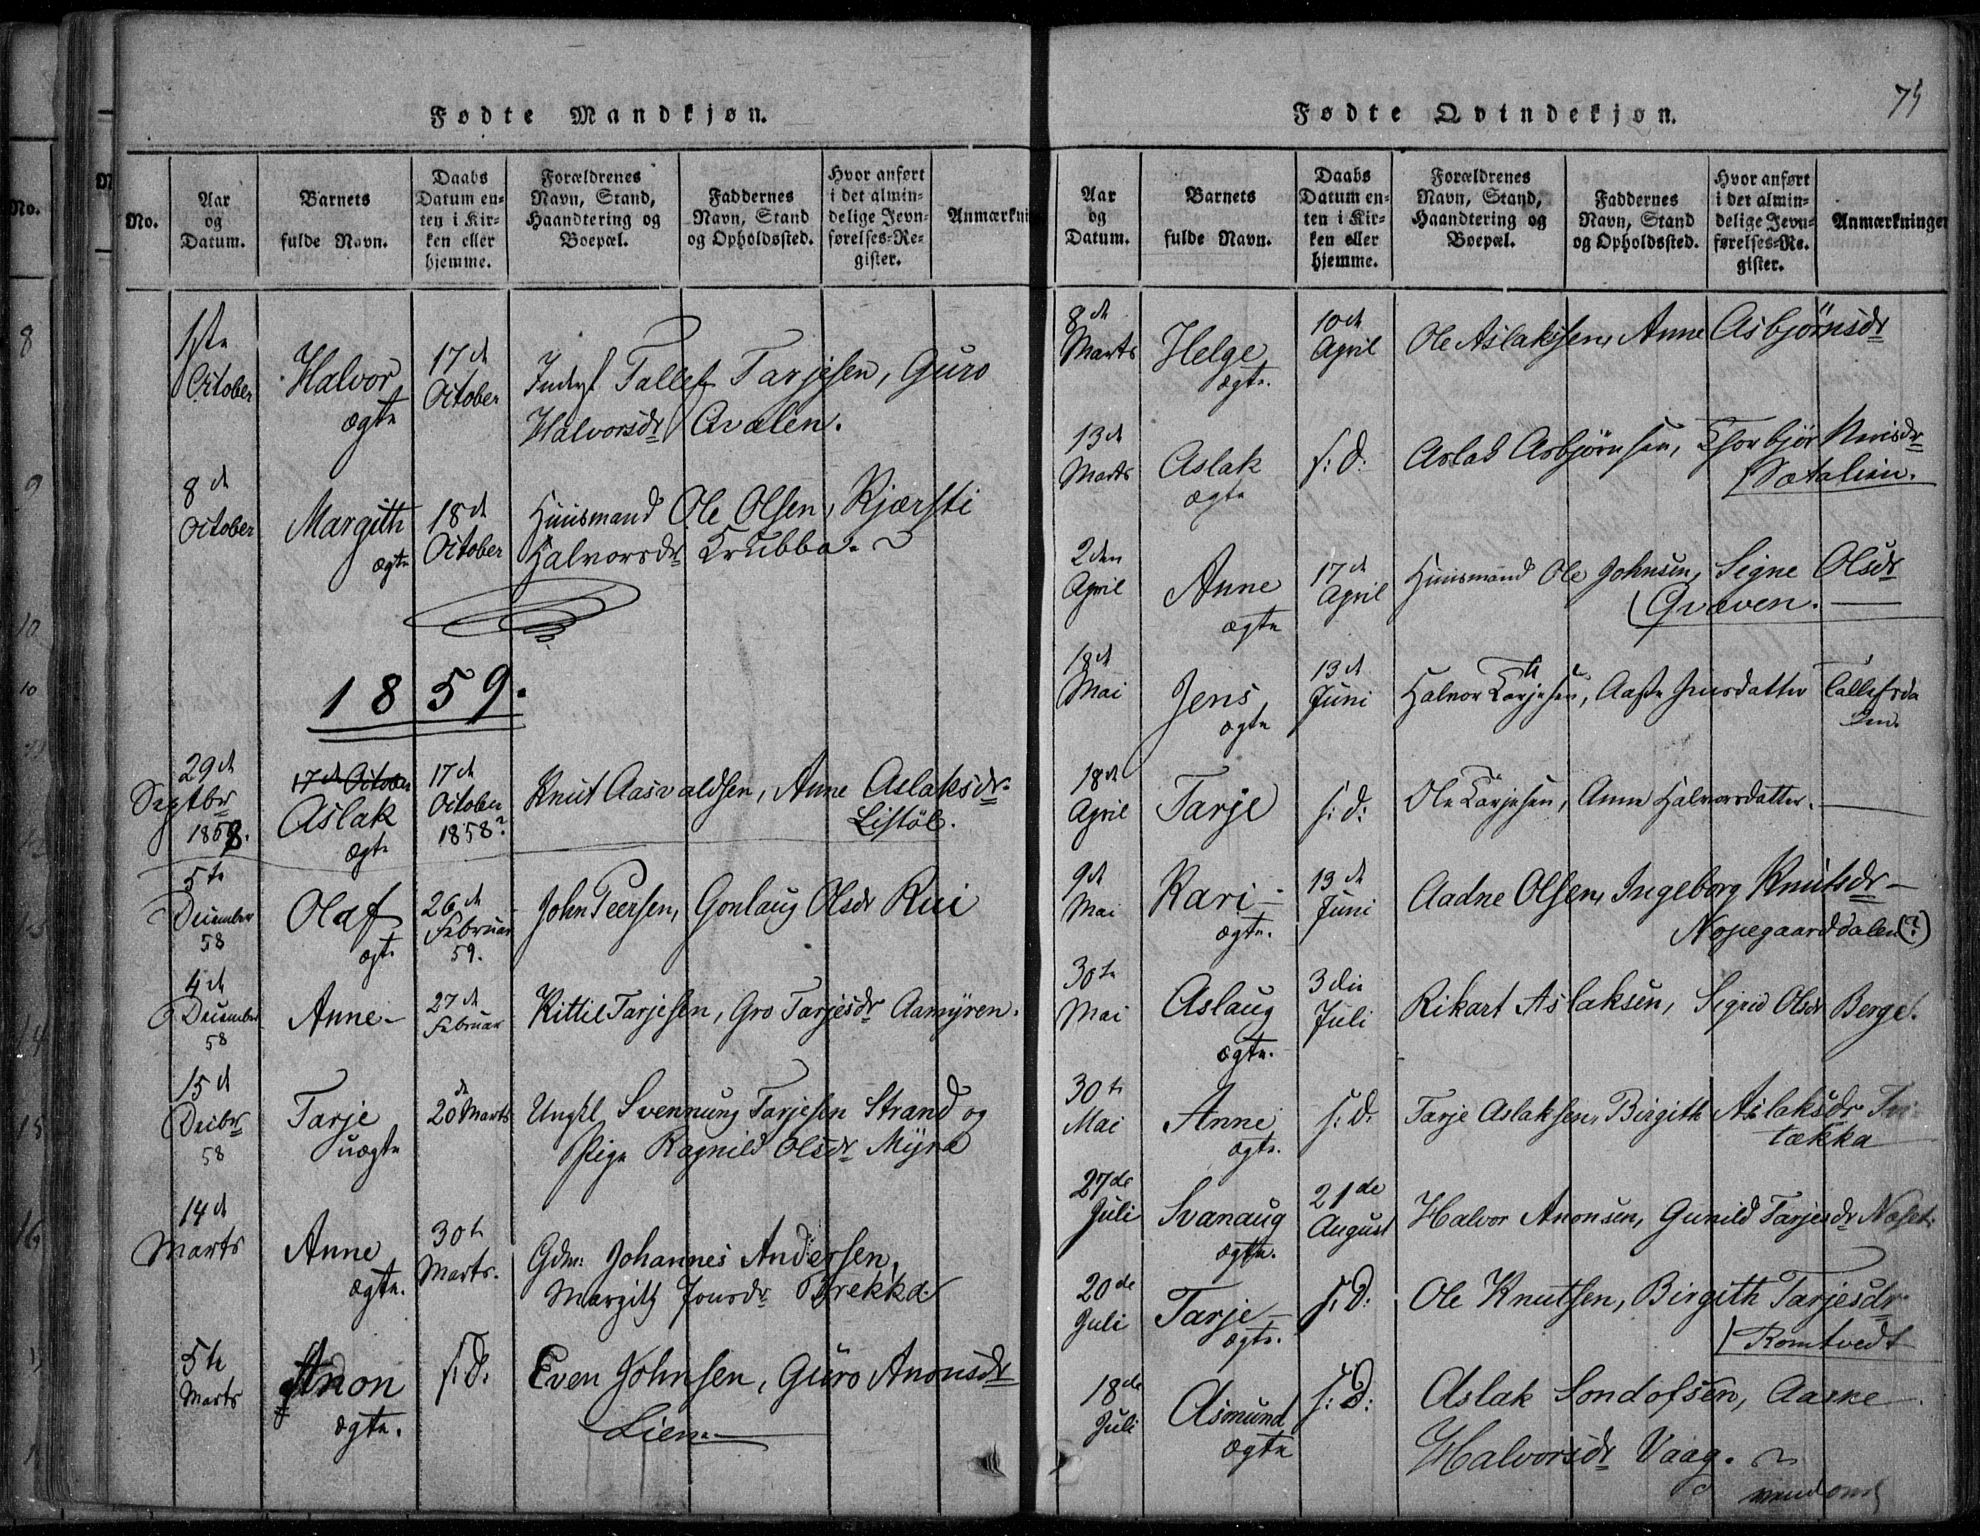 Fødte Mandkjøn.
No.
Aar og Datum.
Barnets fulde Navn.
Daabs Datum enten i Kirken eller hjemme.
Forældrenes Navn, Stand, Haandtering og Boepæl.
Faddernes Navn, Stand og Opholdssted.
Hvor anført i det almindelige Jevnførelses-Register.
Anmærkni
1ste October Halvor ægte 17de October Tallef Tarjesen, Guro
Halvorsdr
8de October Margith ægte 18de October Huusmand Ole Olsen, Kjærsti
Halvorsdr Krubba.
1859.
29de Septbr 1858. 17de October Aslak ægte 17de October 1858? Knut Aasvaldsen, Anne Aslaksdr.
Listøl.
5te December 58 Olaf ægte 26de Februar 59. John Peersen, Gonlaug Olsdr Rui
4de December 58 Anne- 27de Februar Kittil Tarjesen, Gro Tarjesdr Aamyren.
15de Decbr 58 Tarje uægte 20de Marts Ungkl Svennung Tarjesen Strand og
Pige Ragnild Olsdr Myra
14de Marts Anne ægte. 30te Marts. Gdm: Johannes Andersen,
Margith Jonsdr Brekka
5te Marts Anon ægte. s:D: Even Johnsen, Guro Anonsdr
Lien.
75
Fødte Qvindekjøn.
Aar og Datum.
Barnets fulde Navn.
Daabs Datum enten i Kirken eller hjemme.
Forældrenes Navn, Stand, Haandtering og Boepæl.
Faddernes Navn, Stand og Opholdssted.
Hvor anført i det almindelige Jevnførelses-Re. gister.
Anmærkninger
8de Marts Helge ægte. 10de April Ole Aslakssen, Anne Asbjørnsdr
13de Marts Aslak ægte s:D: Aslak Asbjørnsen, Thorbjør
Sætalien.
2den April Anne ægte 17de April Huusmand Ole Johnsen, Signe Olsdr
Qvæven.
18de Mai Jens ægte 13de Juni Halvor Tarjesen, Aaste Jensdatter Tallefsda
len.
18de April Tarje s:D: Ole Tarjesen, Anne Halvorsdatter.
9de Mai Kari- ægte. 13de Juni Aadne Olsen, Ingeborg Knutsdr-
Nopegaarddalen(?)
30te Mai Aslaug ægte. 3die Juli Rikart Aslaksen, Sigrid Olsdr Berge.
30te Mai Anne ægte. s:D: Tarje Aslaksen, Birgith Aslaksdr
tækka
27de Juli Svanaug ægte. 21de August Halvor Anonsen, Gunild Tarjesdr Næset.
20de Juli Tarje- ægte. s:D: Ole Knutsen, Birgith Tarjesdr
Romtvedt
18de Juli Asmund ægte s:D: Aslak Sondofsen, Aasne
Halvorsdr Vaag.
vend om